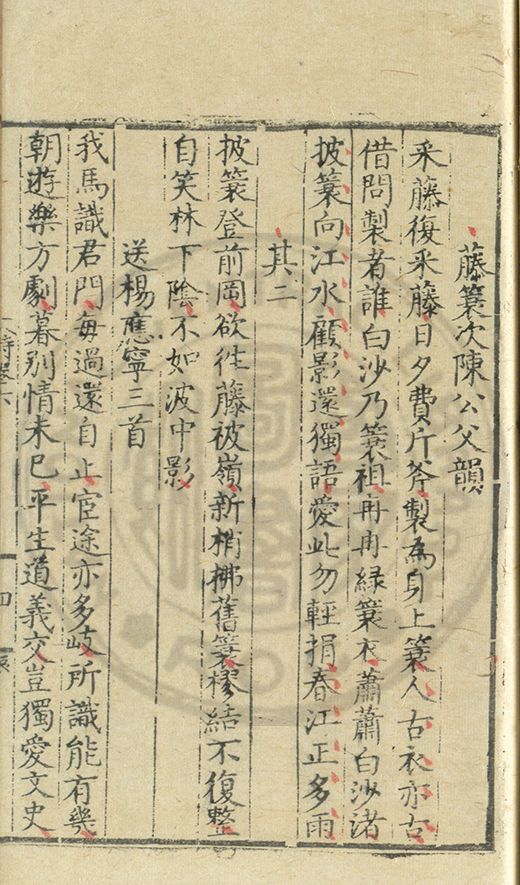 藤簑次陳公父韻
采藤復采藤日夕費斤斧製為身上簑人古衣亦古
借問製者誰白沙乃簑祖冉冉緑簑衣蕭蕭白沙渚
披簑向江水顧影還獨語愛此勿輕捐春江正多雨
其二
披簑登前岡欲往藤被嶺新梢拂舊簑樛結不復整
自笑林下陰不如波中影
送楊應寧三首
我馬識君門每過還自止宦途亦多岐所識能有幾
朝遊樂方劇暮别情未已平生道義交豈獨愛文史